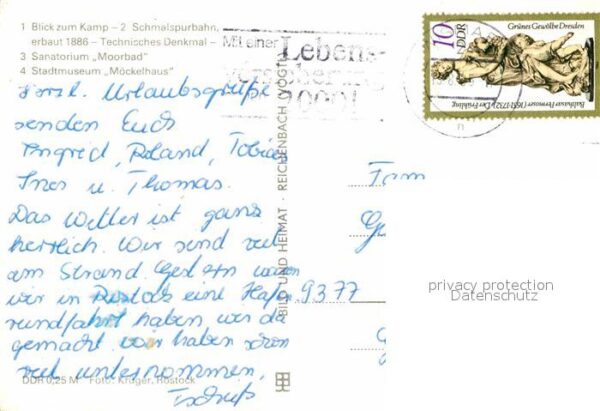 1 Blick zum Kamp – 2 Schmalspurbahn,
erbaut 1886 – Technisches Denkmal –
3 Sanatorium „Moorbad"
4 Stadtmuseum „Möckelhaus"
Mit einer Lebens-
Herzl. Urlaubsgrüße
senden Euch
Ingrid, Roland, Tobias
Ines u. Thomas.
Das Wetter ist ganz
herrlich. Wir sind viel
am Strand. Gestern waren
wir in Rostock eine Hafen
rundfahrt haben wir da
gemacht. Wir haben schon
viel unternommen,
Tschüß
DDR 0,25 M Foto: Krüger, Rostock
BILD UND HEIMAT · REICHENBACH (VOGTL)
10 DDR
Grünes Gewölbe Dresden
Balthasar Permoser (1651-1732) · Der Frühling
Fam
9377
privacy protection
Datenschutz